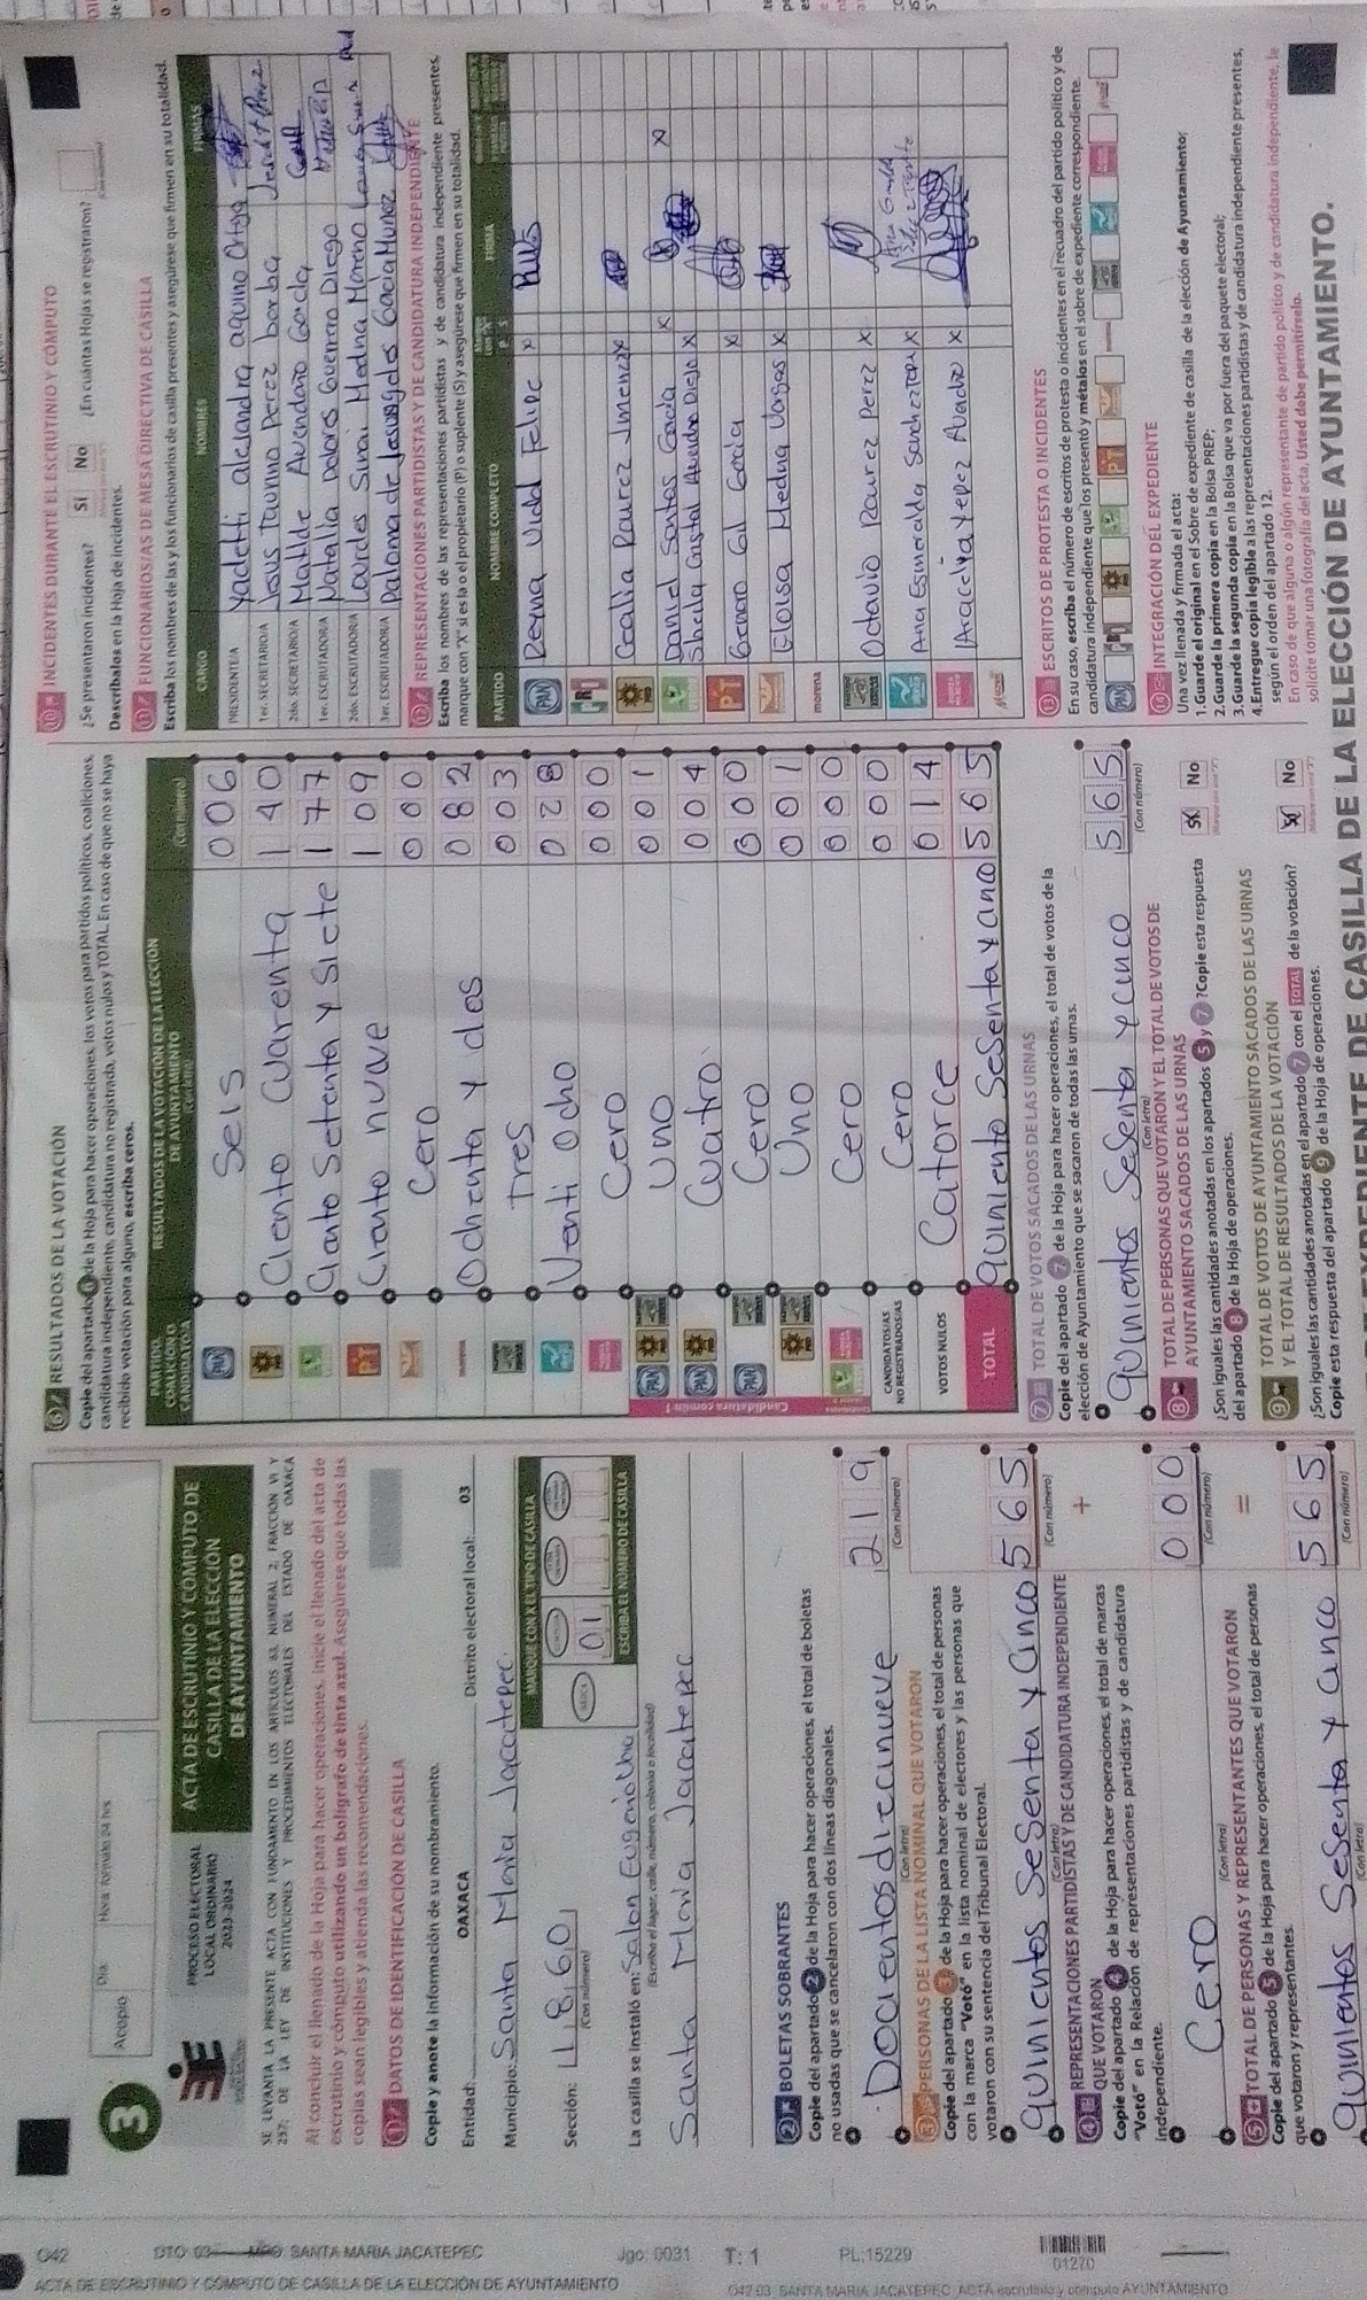 3
Acopio
Día:
Hora: formato 24 hrs
PROCESO ELECTORAL
LOCAL ORDINARIO
2023-2024
ACTA DE ESCRUTINIO Y CÓMPUTO DE
CASILLA DE LA ELECCIÓN
DE AYUNTAMIENTO
SE LEVANTA LA PRESENTE ACTA CON FUNDAMENTO EN LOS ARTÍCULOS 83, NUMERAL 2, FRACCIÓN VI Y
257; DE LA LEY DE INSTITUCIONES Y PROCEDIMIENTOS ELECTORALES DEL ESTADO DE OAXACA
Al concluir el llenado de la Hoja para hacer operaciones, inicie el llenado del acta de
escrutinio y cómputo utilizando un bolígrafo de tinta azul. Asegúrese que todas las
copias sean legibles y atienda las recomendaciones.
1 DATOS DE IDENTIFICACIÓN DE CASILLA
Copie y anote la información de su nombramiento.
Entidad: OAXACA Distrito electoral local: 03
Municipio: Santa Maria Jacatepec.
MARQUE CON X EL TIPO DE CASILLA
Sección:
(Con número)
BÁSICA
01
ESCRIBA EL NÚMERO DE CASILLA
La casilla se instaló en: Salon
(Escriba el lugar, calle, número, colonia o localidad)
Santa Maria Jacatepec
2 BOLETAS SOBRANTES
Copie del apartado 2 de la Hoja para hacer operaciones, el total de boletas
no usadas que se cancelaron con dos líneas diagonales.
Docientos diecinueve 219
(Con letra) (Con número)
3 PERSONAS DE LA LISTA NOMINAL QUE VOTARON
Copie del apartado 3 de la Hoja para hacer operaciones, el total de personas
con la marca "Votó" en la lista nominal de electores y las personas que
votaron con su sentencia del Tribunal Electoral.
quinientos sesenta y cinco 565
(Con letra) (Con número)
4 REPRESENTACIONES PARTIDISTAS Y DE CANDIDATURA INDEPENDIENTE
QUE VOTARON
Copie del apartado 4 de la Hoja para hacer operaciones, el total de marcas
"Votó" en la Relación de representaciones partidistas y de candidatura
independiente.
+
Cero 000
(Con letra) (Con número)
5 TOTAL DE PERSONAS Y REPRESENTANTES QUE VOTARON
Copie del apartado 5 de la Hoja para hacer operaciones, el total de personas
que votaron y representantes.
=
quinientos sesenta y cinco 565
(Con letra) (Con número)
6 RESULTADOS DE LA VOTACIÓN
Copie del apartado 6 de la Hoja para hacer operaciones, los votos para partidos políticos, coaliciones,
candidatura independiente, candidatura no registrada, votos nulos y TOTAL. En caso de que no se haya
recibido votación para alguno, escriba ceros.
PARTIDO, COALICIÓN O CANDIDATO/A
RESULTADOS DE LA VOTACIÓN DE LA ELECCIÓN
DE AYUNTAMIENTO
(Con letra) (Con número)
PAN Seis 006
PRD Ciento Cuarenta 140
Ciento Setenta y Siete 177
PT Ciento nueve 109
Cero 000
morena Ochenta y dos 082
Tres 003
Venti ocho 028
Cero 000
Candidatura común 1
PAN Uno 001
PAN Cuatro 004
PAN Cero 000
Uno 001
Cero 000
CANDIDATOS/AS
NO REGISTRADOS/AS
Cero 000
VOTOS NULOS Catorce 014
TOTAL quiniento sesenta y cinco 565
7 TOTAL DE VOTOS SACADOS DE LAS URNAS
Copie del apartado 7 de la Hoja para hacer operaciones, el total de votos de la
elección de Ayuntamiento que se sacaron de todas las urnas.
quinientos sesenta y cinco 565
(Con letra) (Con número)
8 TOTAL DE PERSONAS QUE VOTARON Y EL TOTAL DE VOTOS DE
AYUNTAMIENTO SACADOS DE LAS URNAS
¿Son iguales las cantidades anotadas en los apartados 5 y 7 ? Copie esta respuesta
del apartado 8 de la Hoja de operaciones.
Sí No
9 TOTAL DE VOTOS DE AYUNTAMIENTO SACADOS DE LAS URNAS
Y EL TOTAL DE RESULTADOS DE LA VOTACIÓN
¿Son iguales las cantidades anotadas en el apartado 7 con el TOTAL de la votación?
Copie esta respuesta del apartado 9 de la Hoja de operaciones.
Sí No
10 INCIDENTES DURANTE EL ESCRUTINIO Y CÓMPUTO
¿Se presentaron incidentes? Sí No ¿En cuántas Hojas se registraron?
Descríbalos en la Hoja de incidentes.
11 FUNCIONARIOS/AS DE MESA DIRECTIVA DE CASILLA
Escriba los nombres de las y los funcionarios de casilla presentes y asegúrese que firmen en su totalidad.
CARGO NOMBRES FIRMAS
PRESIDENTE/A Yadetti alejandra aquino Ortega
1er. SECRETARIO/A Jesus Taurino Perez borba
2do. SECRETARIO/A Matilde Avendaño Garcia
1er. ESCRUTADOR/A Natalia Dolores Guerrero Diego
2do. ESCRUTADOR/A Lourdes Sinai Medina Moreno
3er. ESCRUTADOR/A Paloma de Jesus Garcia Muñoz
12 REPRESENTACIONES PARTIDISTAS Y DE CANDIDATURA INDEPENDIENTE
Escriba los nombres de las representaciones partidistas y de candidatura independiente presentes,
marque con "X" si es la o el propietario (P) o suplente (S) y asegúrese que firmen en su totalidad.
PARTIDO NOMBRE COMPLETO P S FIRMA
PAN Reyna Vidal Felipe X
PRI
PRD Coralia Ramirez Jimenez X
Daniel Santos Garcia X X
Sheila Cristal Avendaño Diego X
PT Genaro Gil Garcia X
Eloisa Medina Vargas X
morena
Octavio Ramirez Perez X
Ana Esmeralda Sanchez X
Araceli X
13 ESCRITOS DE PROTESTA O INCIDENTES
En su caso, escriba el número de escritos de protesta o incidentes en el recuadro del partido político y de
candidatura independiente que los presentó y métalos en el sobre de expediente correspondiente.
14 INTEGRACIÓN DEL EXPEDIENTE
Una vez llenada y firmada el acta:
1.Guarde el original en el Sobre de expediente de casilla de la elección de Ayuntamiento;
2.Guarde la primera copia en la Bolsa PREP;
3.Guarde la segunda copia en la Bolsa que va por fuera del paquete electoral;
4.Entregue copia legible a las representaciones partidistas y de candidatura independiente presentes,
según el orden del apartado 12.
En caso de que alguna o algún representante de partido político y de candidatura independiente, le
solicite tomar una fotografía del acta, Usted debe permitírselo.
EXPEDIENTE DE CASILLA DE LA ELECCIÓN DE AYUNTAMIENTO.
O42 DTO: 03 MPO: SANTA MARIA JACATEPEC Jgo: 0031 T: 1 PL:15229 01270
ACTA DE ESCRUTINIO Y CÓMPUTO DE CASILLA DE LA ELECCIÓN DE AYUNTAMIENTO
O42 03 SANTA MARIA JACATEPEC ACTA escrutinio y cómputo AYUNTAMIENTO